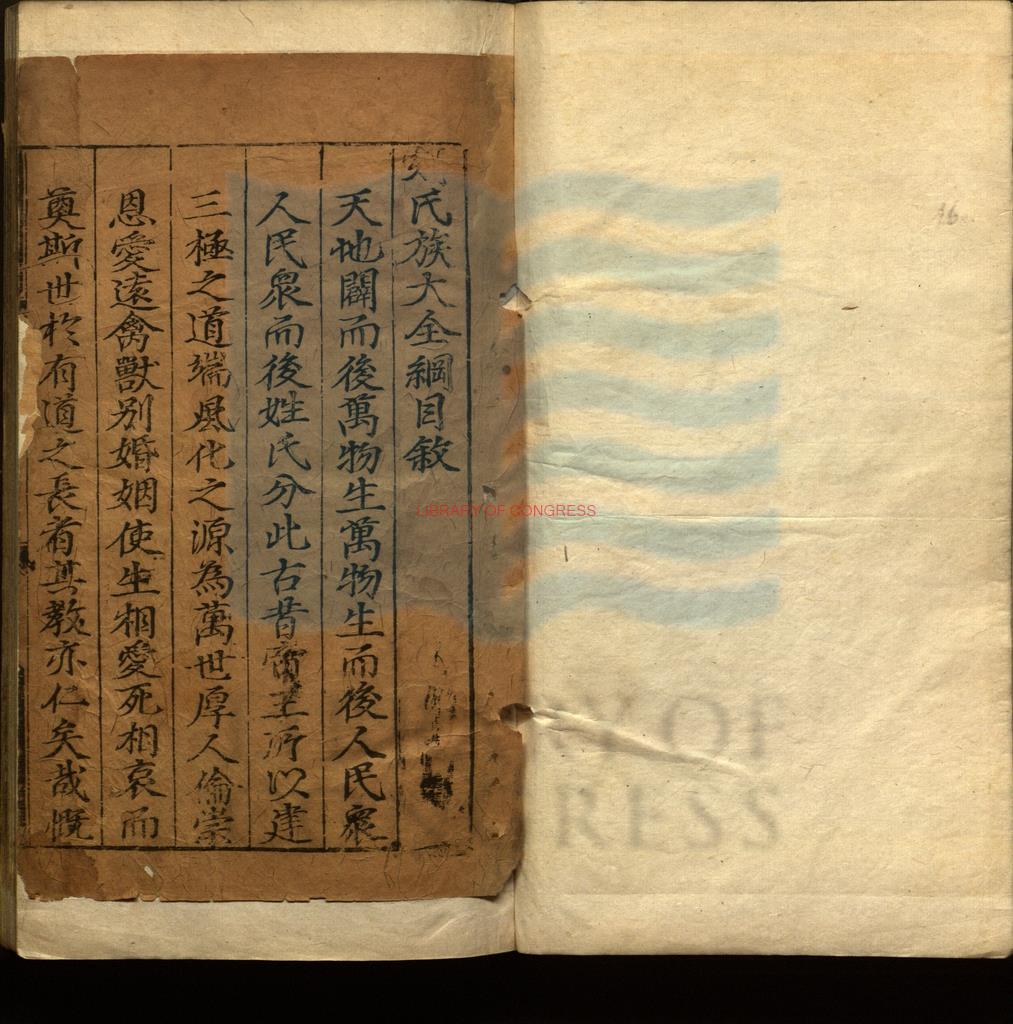 氏族大全綱目敘
天地闢而後萬物生萬物生而後人民衆
人民衆而後姓氏分此古昔帝王所以建
三極之道端風化之源為萬世厚人倫崇
恩愛遠禽獸別婚姻使生相愛死相哀而
奠斯世於有道之長者其教亦仁矣哉慨
LIBRARY OF CONGRESS